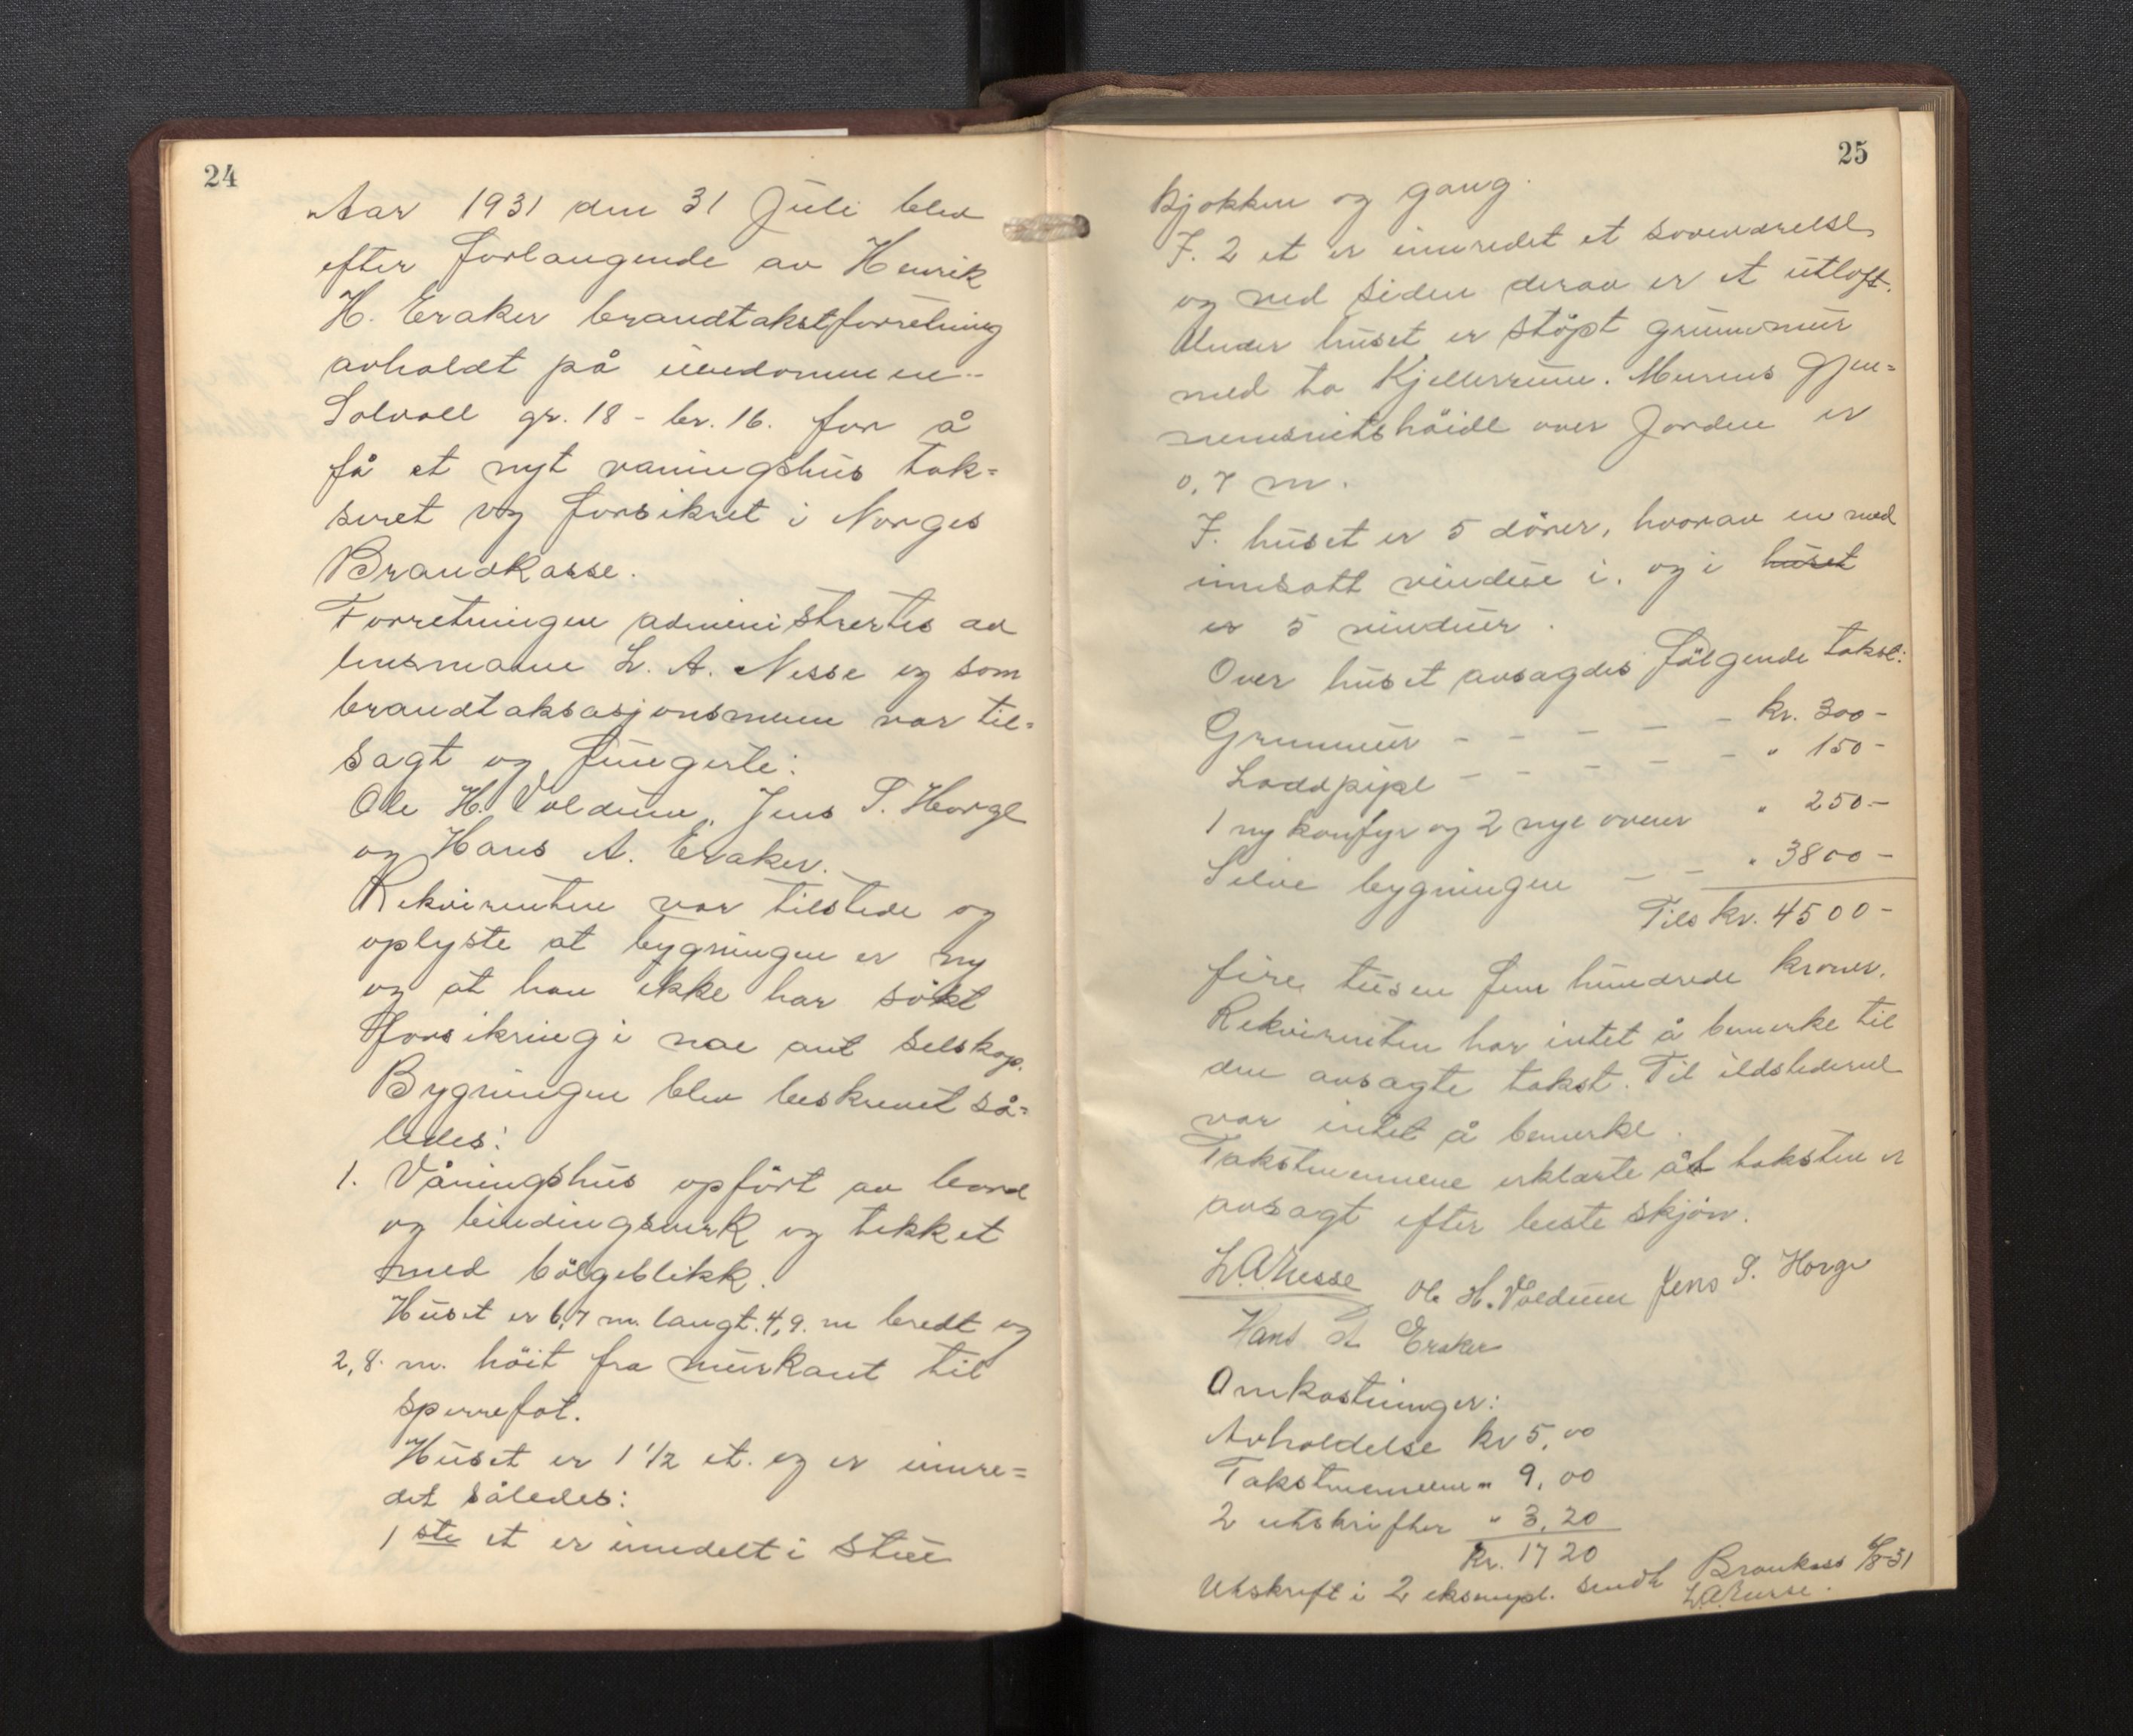 24
Aar 1931 den 31 Juli blev
efter forlangende av Henrik
H. Eraker brandtakstforretning
avholdt på eiendommen
Solvoll gr. 18 - br. 16. for å
få et nyt vaningshus tak-
seret og forsikret i Norges
Brandkasse.
Forretningen administrertes av
lensmann L. A. Nesse og som
brandtaksasjonsmenn var til-
sagt og fungerte:
Ole H. Voldum, Jens P. Horge
og Hans A. Eraker.
Rekvirenten var tilstede og
oplyste at bygningen er ny
og at han ikke har søkt
forsikring i noe ant selskap.
Bygningen blev beskrevet så-
ledes:
1. Våningshus opført av bord
og bindingsverk og tekket
med bølgeblikk.
Huset er 6,7 m. langt. 4,9. m bredt og
2,8. m. høit fra murkant til
sperrefot.
Huset er 1 1/2 et. og er innre-
det således:
1ste et er inndelt i stue
25
kjøkken og gang.
I. 2 et er innredet et soveværelse,
og ved siden derav er et utloft.
Under huset er støpt grunnmur
med to kjellerrum. Murens gjen-
nemsnitshøide over jorden er
0,7 m.
I. huset er 5 dører, hvorav en med
innsatt vindue i. og i huset
er 5 vinduer.
Over huset avsagdes følgende takst:
Grunmur - - - - - kr. 300 -
Loddpipe - - - - - - " 150 -
1 ny komfyr og 2 nye ovner " 250 -
Selve bygningen - - " 3800 -
Tils kr. 4500 -
fire tusen fem hundrede kroner.
Rekvirenten har intet å bemerke til
den avsagte takst. Til ildstederne
var intet å bemerke.
Takstmennene erklærte åt taksten er
avsagt efter beste skjønn.
L.A.Nesse Ole H. Voldum Jens P. Horge
Hans A Eraker
Omkostninger:
Avholdelse kr 5,00
Takstmennene " 9,00
2 utskrifter " 3,20
kr. 17 20
Utskrift i 2 eksempl. sendt Brankass 6/8-31
L.A.Nesse.